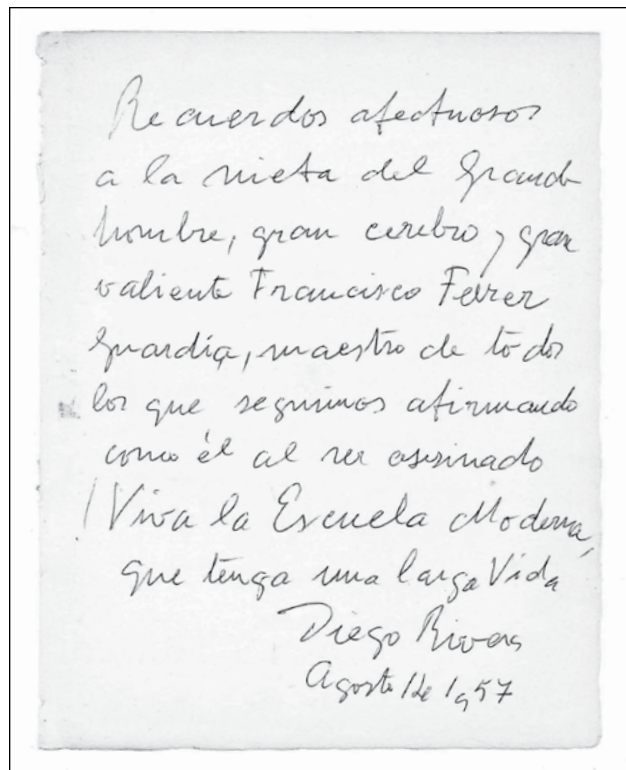 Recuerdos afectuosos
a la nieta del Grande
hombre, gran cerebro y gran
valiente Francisco Ferrer
Guardia, maestro de todos
los que seguimos afirmando
como él al ser asesinado
¡Viva la Escuela Moderna,
que tenga una larga Vida
Diego Rivera
Agosto 1 de 1957